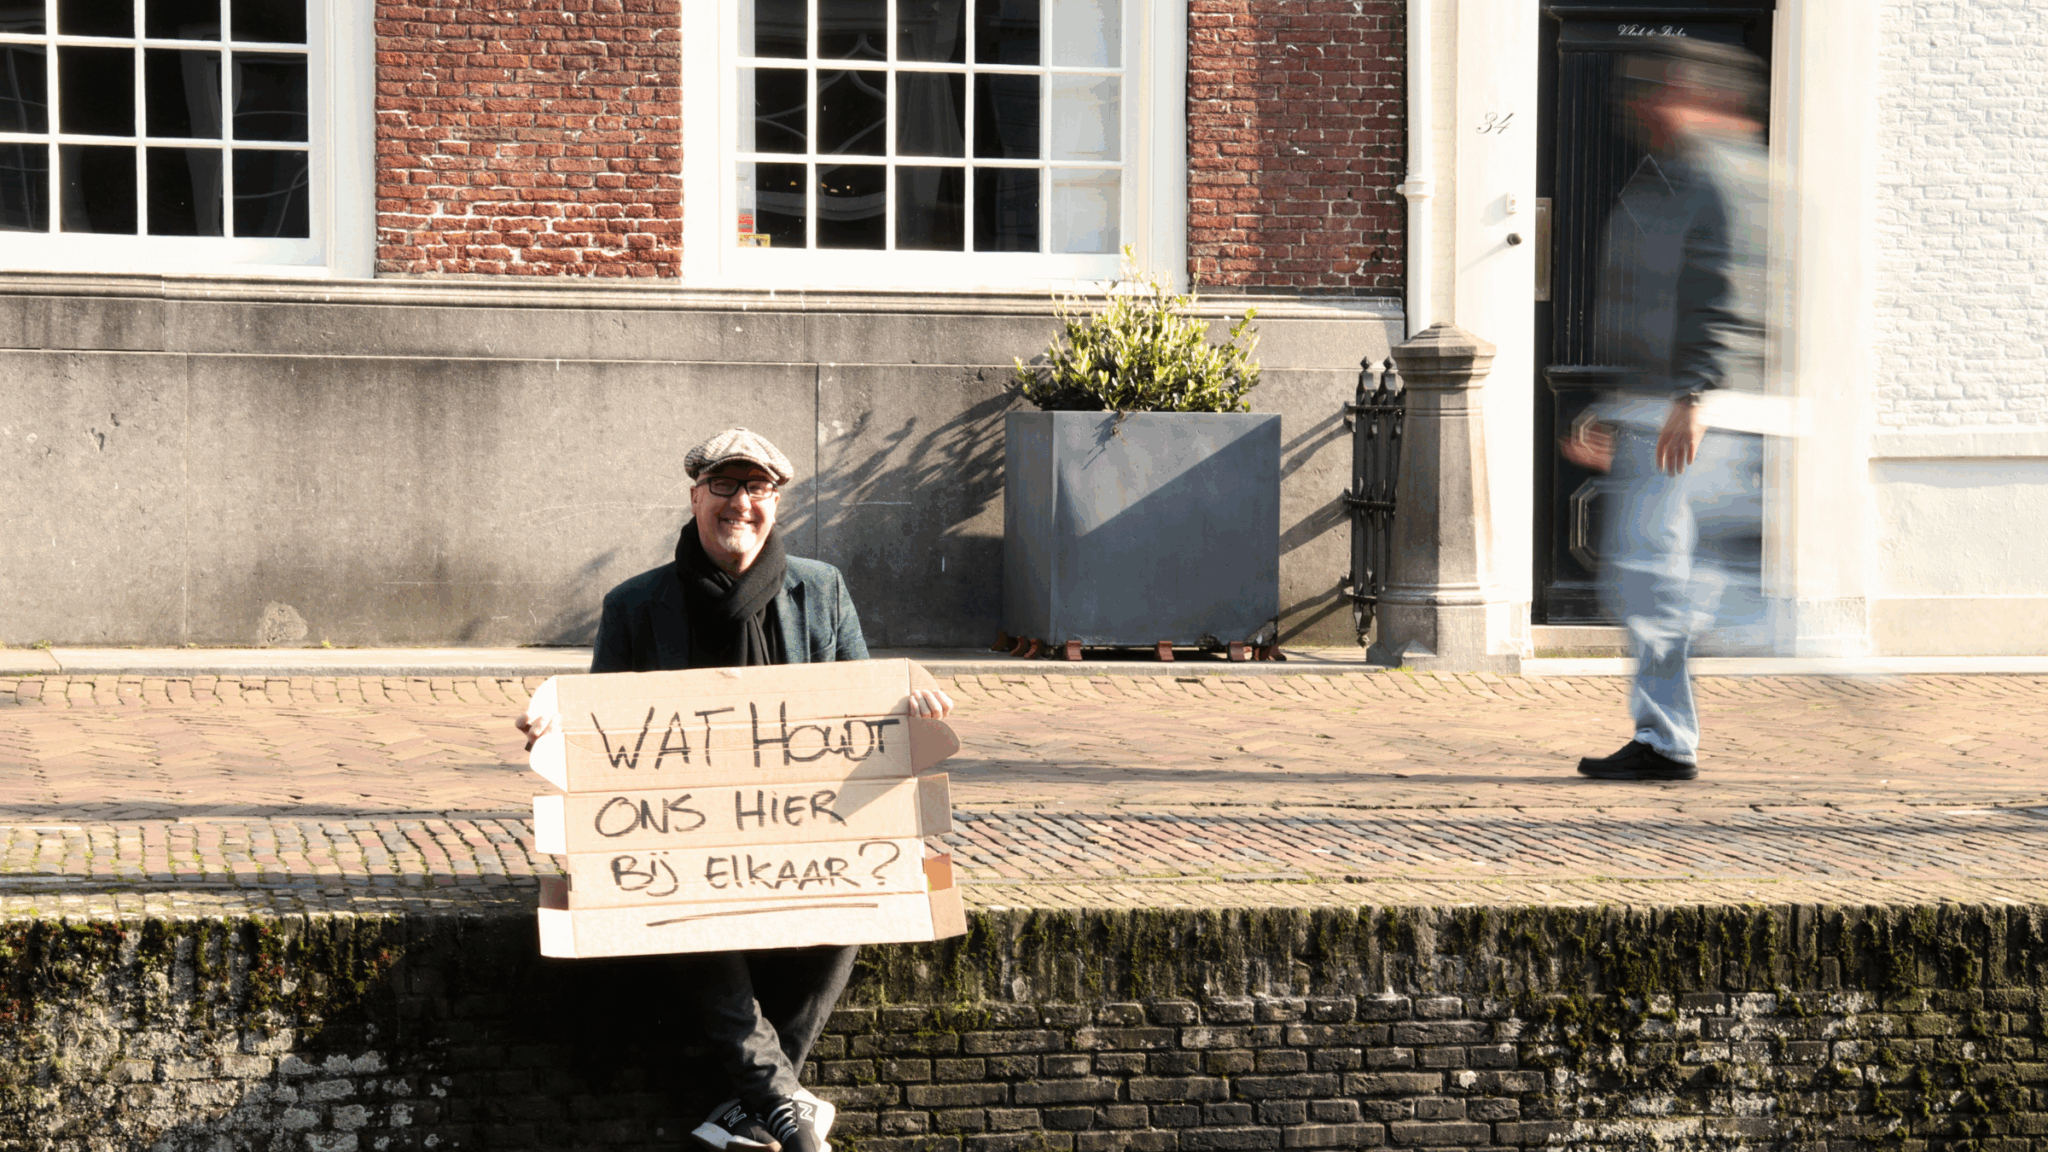 34
WAT HOUDT
ONS HIER
BIJ ELKAAR?